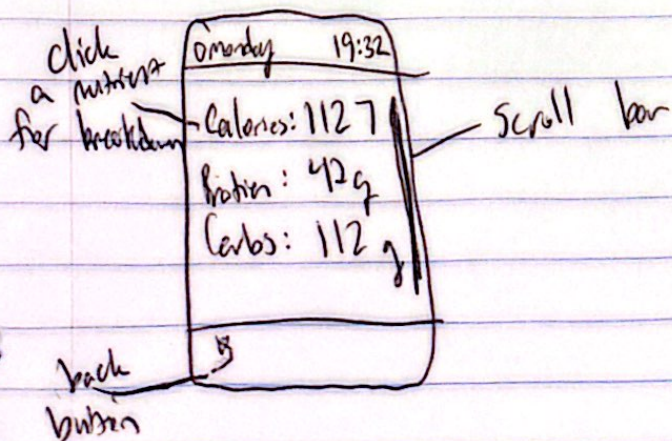 click
a nutrient
for breakdown
monday 19:32
Calories: 1127
Protien: 42g
Carbs: 112 g
Scroll bar
back
button